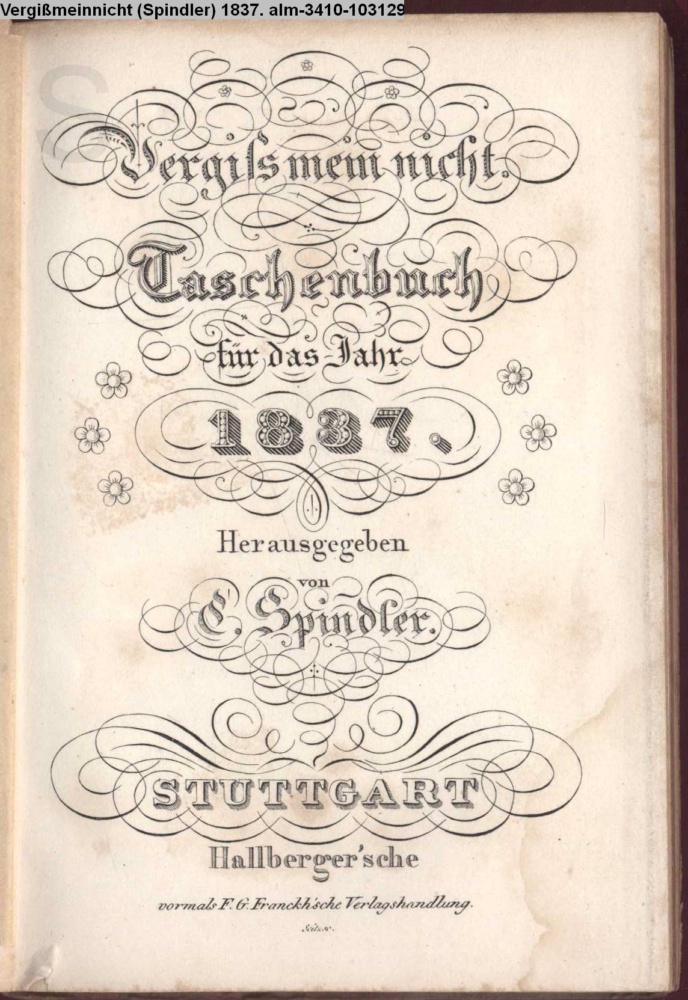 Vergißmeinnicht (Spindler) 1837. alm-3410-103129
Vergiſs mein nicht.
Taschenbuch
für das Jahr
1837.
Herausgegeben
von
C. Spindler.
STUTTGART
Hallberger'sche
vormals F. G. Franckh'sche Verlagshandlung.